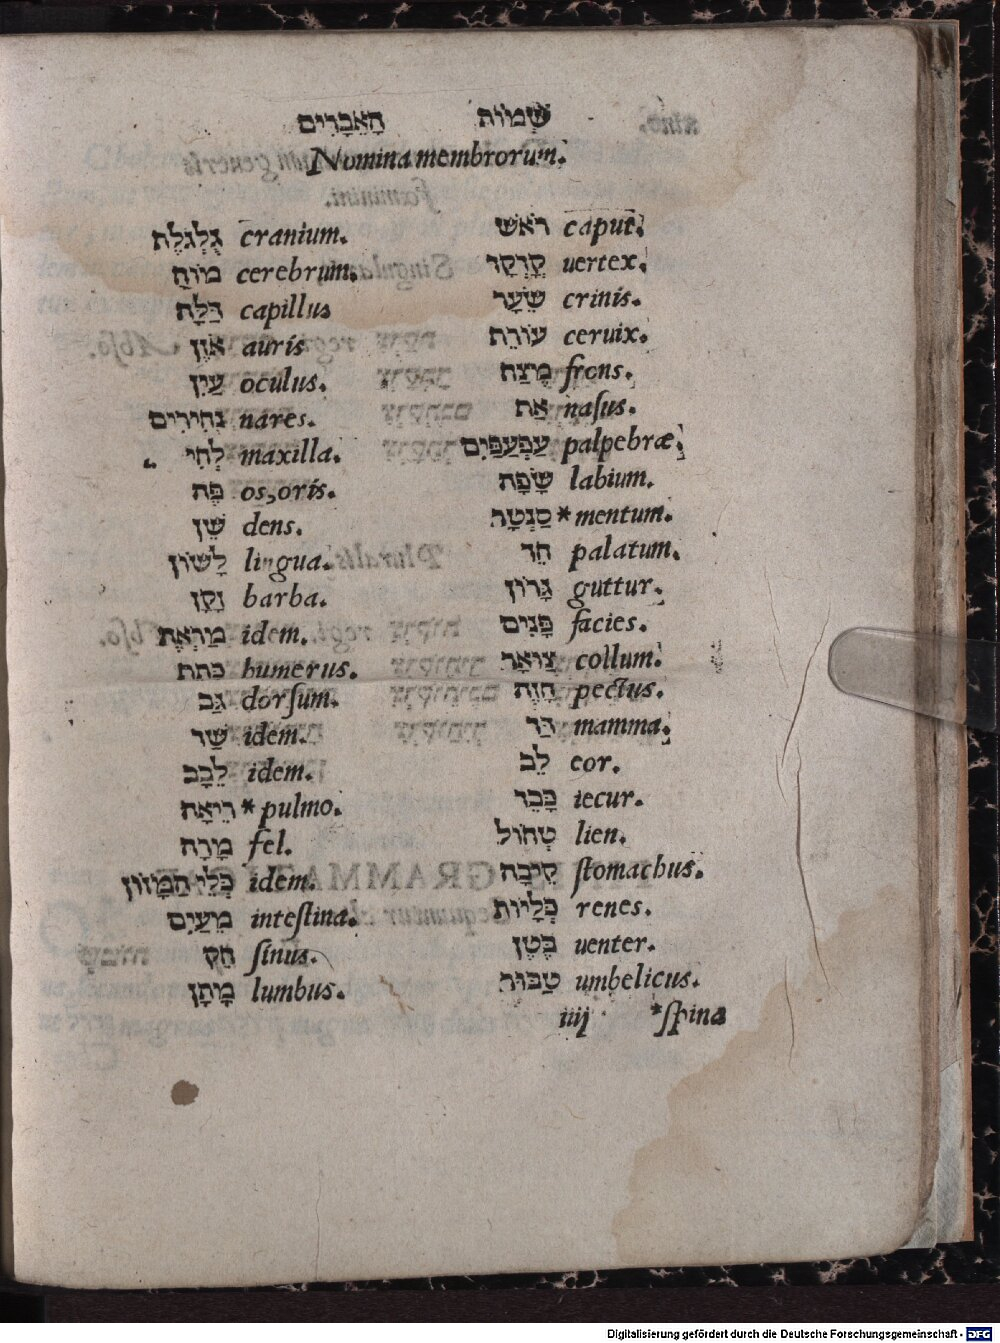 שְׁמוֹת הָאֵבָרִים
Nomina membrorum.
רֹאשׁ caput.
קָדְקֹד uertex.
שֵׂעָר crinis.
עוֹרֶף ceruix.
מֶצַח frons.
אַף naſus.
עַפְעַפַּיִם palpebræ.
שָׂפָה labium.
סַנְטָר *mentum.
חֵךְ palatum.
גָּרוֹן guttur.
פָּנִים facies.
צַוָּאר collum.
חָזֶה pectus.
דַּד mamma.
לֵב cor.
כָּבֵד iecur.
טְחוֹל lien.
קֵיבָה ſtomachus.
כְּלָיוֹת renes.
בֶּטֶן uenter.
טַבּוּר umbelicus.
גֻלְגֹלֶת cranium.
מוֹחַ cerebrum.
דַּלָּה capillus
אֹזֶן auris
עַיִן oculus.
נְחִירִים nares.
לְחִי maxilla.
פֶּה os, oris.
שֵׁן dens.
לָשׁוֹן lingua.
זָקָן barba.
idem.
כתף humerus.
גַּב dorſum.
שַׁד idem.
לֵבָב idem.
רֵיאָה *pulmo.
מָרָה fel.
כְּלֵי הַמָּזוֹן idem.
מֵעַיִם inteſtina.
חֵק ſinus.
מָתָן lumbus.
iiij *ſpina
Digitalisierung gefördert durch die Deutsche Forschungsgemeinschaft - DFG